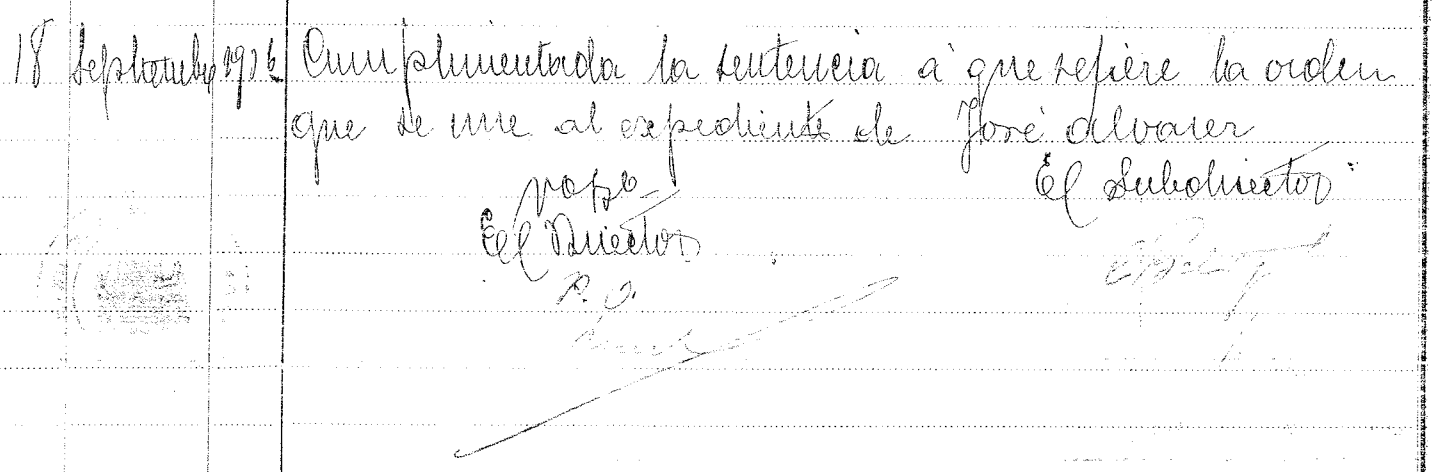 18 Septiembre 1936 Cumplimentada la sentencia á que refiere la orden
que se une al expediente de José Alvarez
VºBº El Subdirector
El Director
P. O.